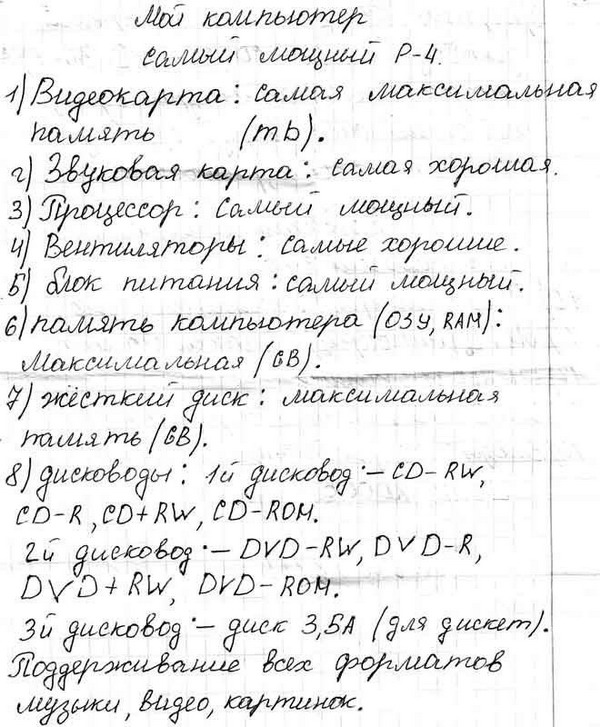 Мой компьютер
самый мощный P-4.
1) Видеокарта: самая максимальная
память (mb).
2) Звуковая карта: самая хорошая.
3) Процессор: самый мощный.
4) Вентиляторы: самые хорошие.
5) блок питания: самый мощный.
6) память компьютера (ОЗУ, RAM):
Максимальная (GB).
7) жёсткий диск: максимальная
память (GB).
8) дисководы: 1й дисковод:– CD-RW,
CD-R, CD+RW, CD-ROM.
2й дисковод:– DVD-RW, DVD-R,
DVD+RW, DVD-ROM.
3й дисковод:– диск 3,5A (для дискет).
Поддерживание всех форматов
музыки, видео, картинок.